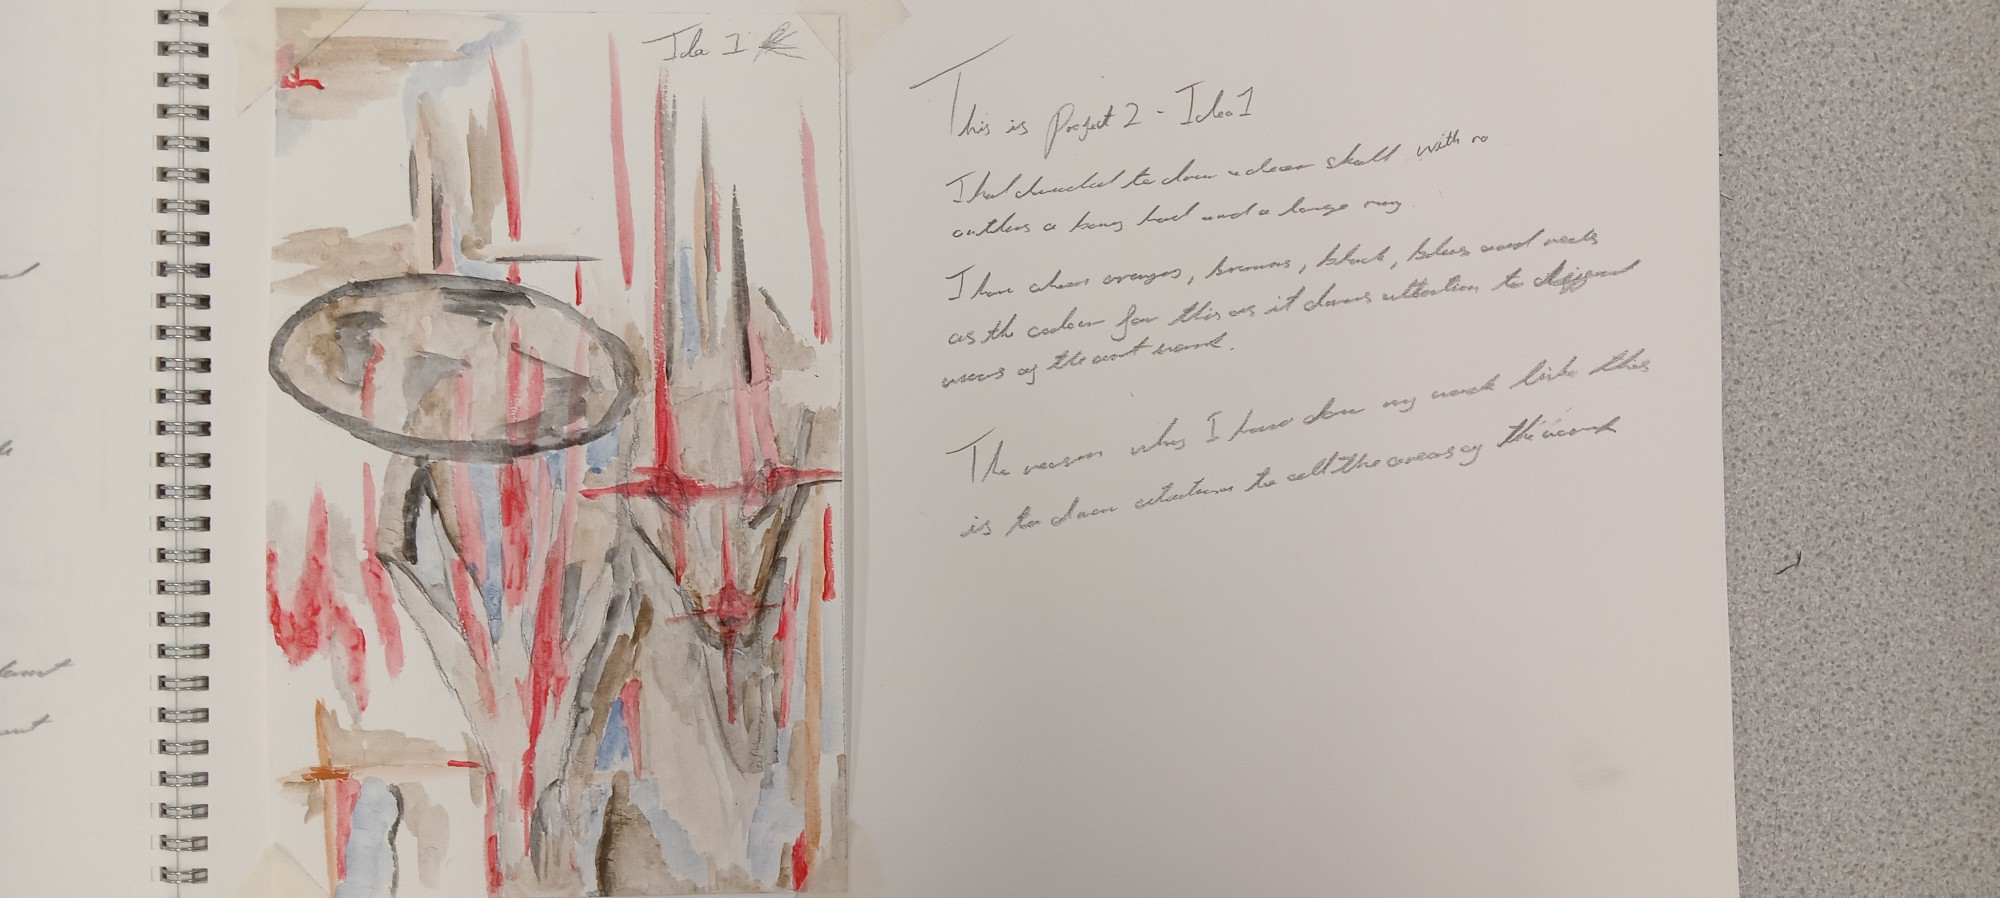 Idea 1
This is Project 2 - Idea 1
I had decided to draw a deer skull with no
outlines a being had and a large
I have chosen oranges, browns, black, blues and reds
as the colour for this as it draws attention to different
areas of the art work.
The reason why I have done my work like this
is to draw attention to all the areas of the work